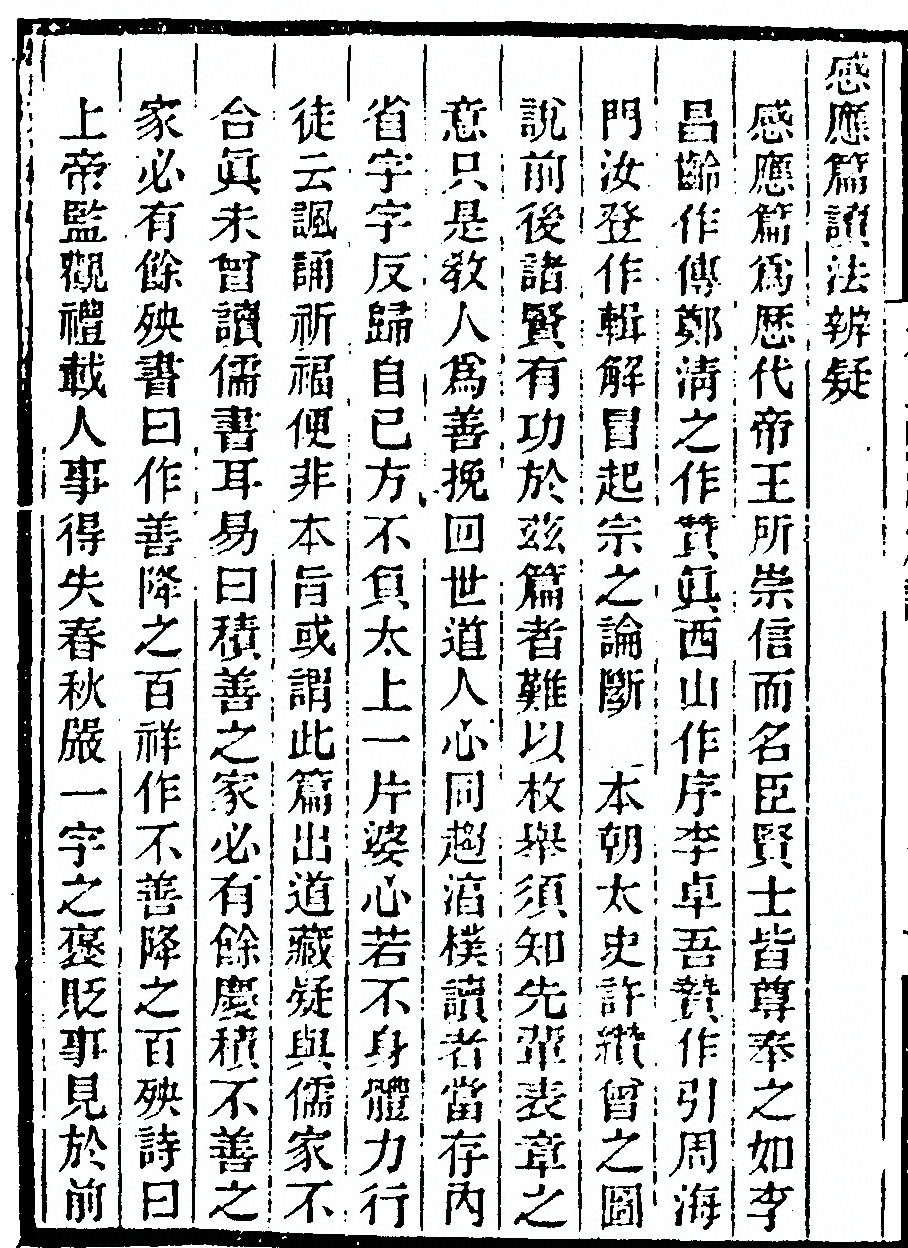 感應篇讀法辨疑
感應篇爲歷代帝王所崇信而名臣賢士皆尊奉之如李
昌齡作傳鄭淸之作贊眞西山作序李卓吾贊作引周海
門汝登作輯解冒起宗之論斷　本朝太史許纘曾之圖
說前後諸賢有功於茲篇者難以枚舉須知先輩表章之
意只是敎人爲善挽回世道人心同趨湻樸讀者當存內
省字字反歸自已方不負太上一片婆心若不身體力行
徒云諷誦祈福便非本旨或謂此篇出道藏疑與儒家不
合眞未曾讀儒書耳易曰積善之家必有餘慶積不善之
家必有餘殃書曰作善降之百祥作不善降之百殃詩曰
上帝監觀禮載人事得失春秋嚴一字之褒貶事見於前